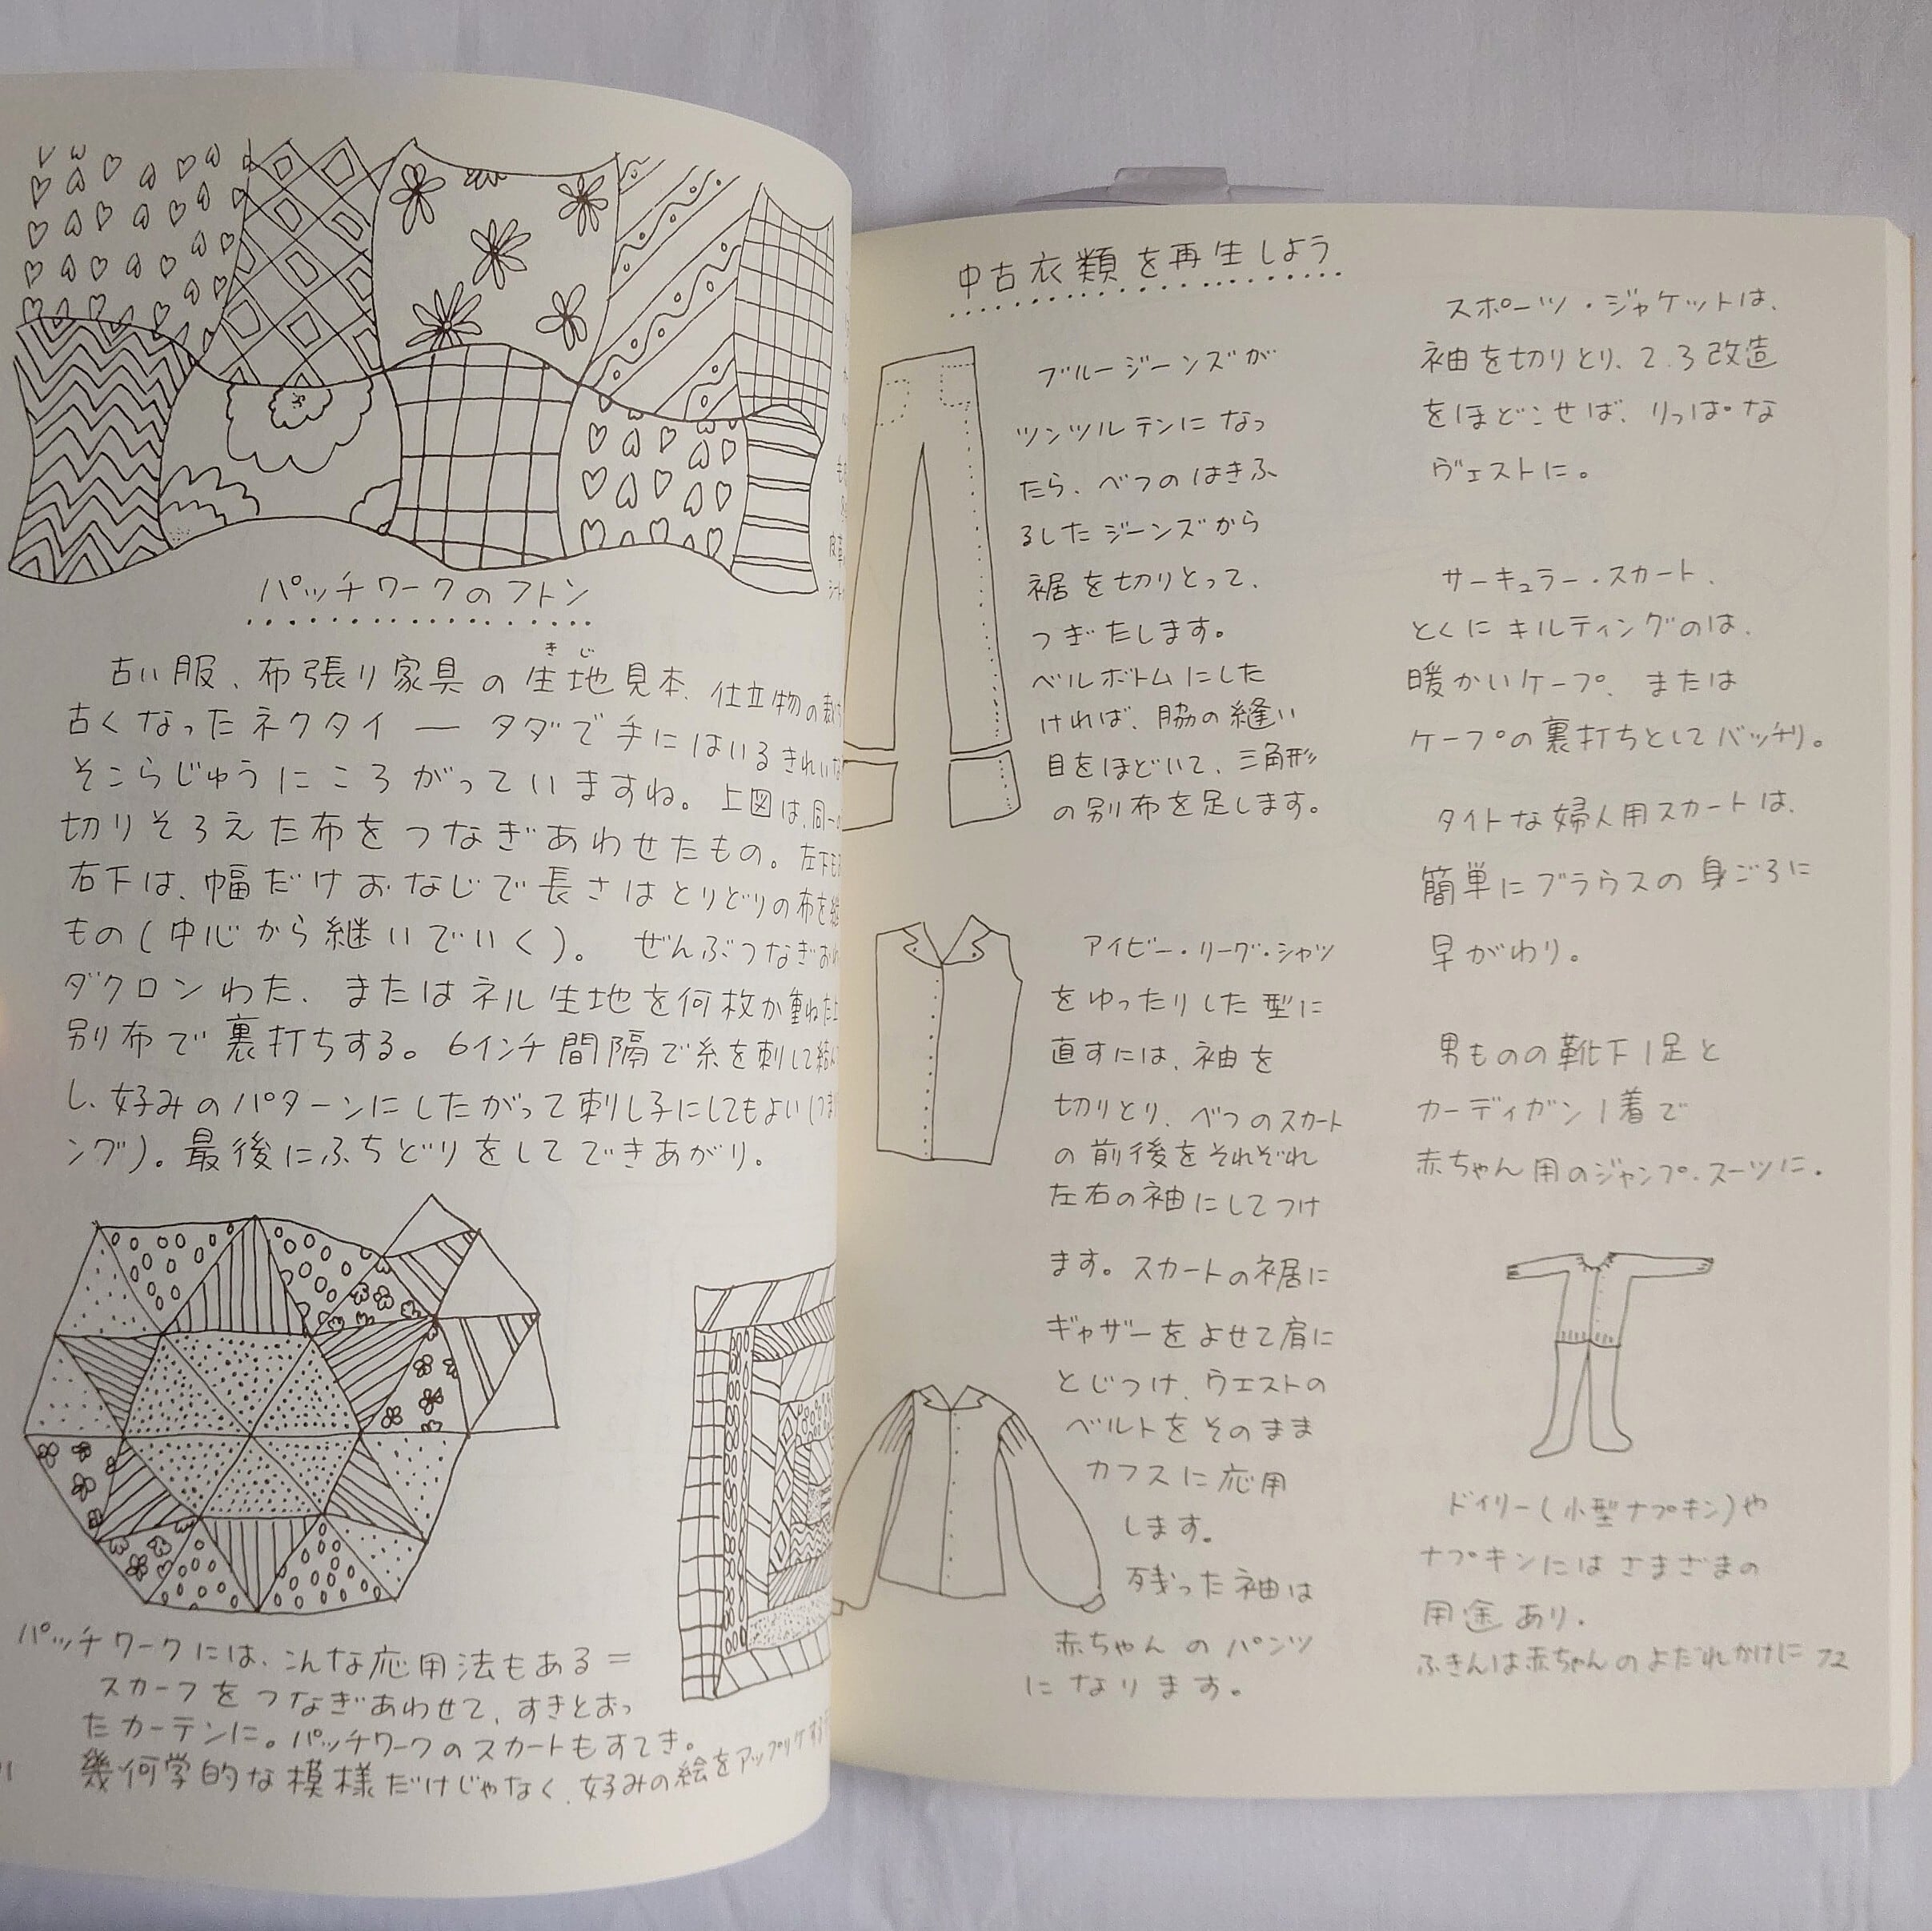 パッチワークのフトン
古い服、布張り家具の生地見本、仕立物の裁ち
きじ
古くなったネクタイ ― タダで手にはいるきれいな
そこらじゅうにころがっていますね。上図は、同一の
切りそろえた布をつなぎあわせたもの。左下も
右下は、幅だけおなじで長さはとりどりの布を継
もの(中心から継いでいく)。 ぜんぶつなぎおわ
ダクロンわた、またはネル生地を何枚か重ねた上
別布で裏打ちする。6インチ間隔で糸を刺して結ん
し、好みのパターンにしたがって刺し子にしてもよい(つま
ング)。最後にふちどりをしてできあがり。
パッチワークには、こんな応用法もある=
スカーフをつなぎあわせて、すきとおっ
たカーテンに。パッチワークのスカートもすてき。
幾何学的な模様だけじゃなく、好みの絵をアップリケする
中古衣類を再生しよう
ブルージーンズが
ツンツルテンになっ
たら、べつのはきふ
るしたジーンズから
裾を切りとって、
つぎたします。
ベルボトムにした
ければ、脇の縫い
目をほどいて、三角形
の別布を足します。
アイビー・リーグ・シャツ
をゆったりした型に
直すには、袖を
切りとり、べつのスカート
の前後をそれぞれ
左右の袖にしてつけ
ます。スカートの裾に
ギャザーをよせて肩に
とじつけ、ウエストの
ベルトをそのまま
カフスに応用
します。
残った袖は
赤ちゃんのパンツ
になります。
スポーツ・ジャケットは、
袖を切りとり、2.3改造
をほどこせば、りっぱな
ヴェストに。
サーキュラー・スカート、
とくにキルティングのは、
暖かいケープ、または
ケープの裏打ちとしてバッチリ。
タイトな婦人用スカートは、
簡単にブラウスの身ごろに
早がわり。
男ものの靴下1足と
カーディガン1着で
赤ちゃん用のジャンプ・スーツに。
ドイリー(小型ナプキン)や
ナプキンにはさまざまの
用途あり.
ふきんは赤ちゃんのよだれかけに
72